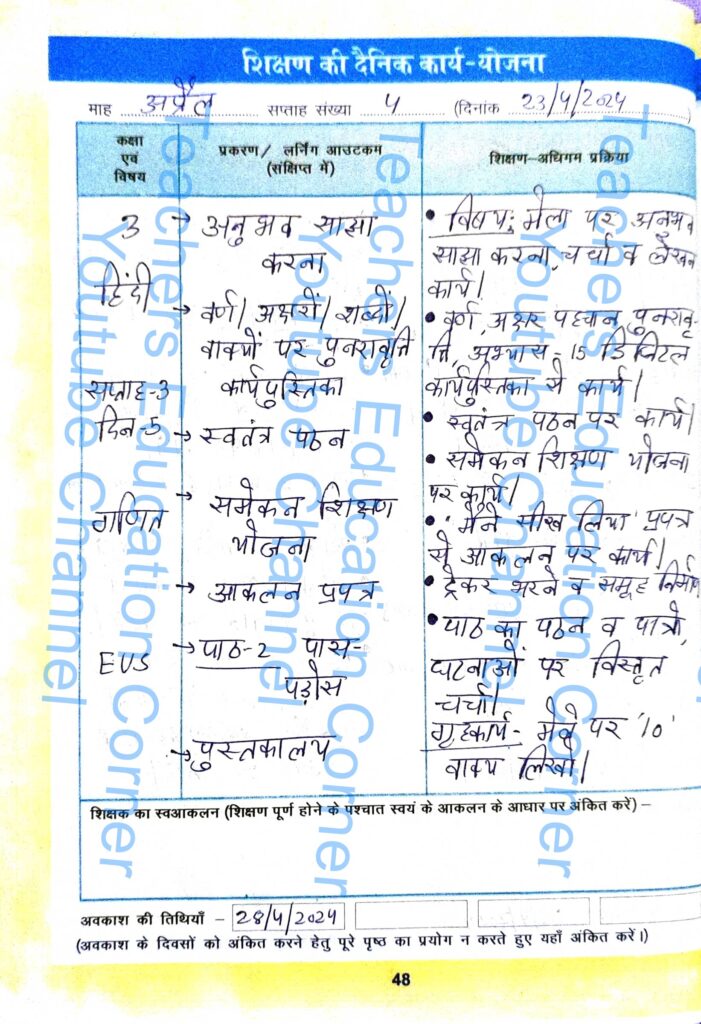 शिक्षण की दैनिक कार्य-योजना
माह अप्रैल सप्ताह संख्या 4 (दिनांक 23/4/2024)
कक्षा एवं विषय
प्रकरण/ लर्निंग आउटकम (संक्षिप्त में)
शिक्षण–अधिगम प्रक्रिया
3
हिंदी
सप्ताह-3
दिन-5
गणित
EVS
→ अनुभव साझा
करना
→ वर्ण/ अक्षरों/ शब्दों/
वाक्यों पर पुनरावृत्ति
कार्यपुस्तिका
→ स्वतंत्र पठन
→ समेकन शिक्षण
योजना
→ आकलन प्रपत्र
→ पाठ-2 पास-
पड़ोस
→ पुस्तकालय
• विषय: मेला पर अनुभव
साझा करना, चर्चा व लेखन
कार्य।
• वर्ण, अक्षर पहचान, पुनरावृ-
त्ति, अभ्यास-15 डिजिटल
कार्यपुस्तिका से कार्य।
• स्वतंत्र पठन पर कार्य।
• समेकन शिक्षण योजना
पर कार्य।
• 'मैंने सीख लिया' प्रपत्र
से आकलन पर कार्य।
• ट्रेकर भरने व समूह निर्माण
• पाठ का पठन व पात्रों,
घटनाओं पर विस्तृत
चर्चा।
गृहकार्य- मेले पर '10'
वाक्य लिखो।
शिक्षक का स्वआकलन (शिक्षण पूर्ण होने के पश्चात स्वयं के आकलन के आधार पर अंकित करें) –
अवकाश की तिथियाँ – 28/4/2024
(अवकाश के दिवसों को अंकित करने हेतु पूरे पृष्ठ का प्रयोग न करते हुए यहाँ अंकित करें।)
48
Teachers Education Corner
Youtube Channel
Teachers Education Corner
Youtube Channel
Teachers Education Corner
Youtube Channel